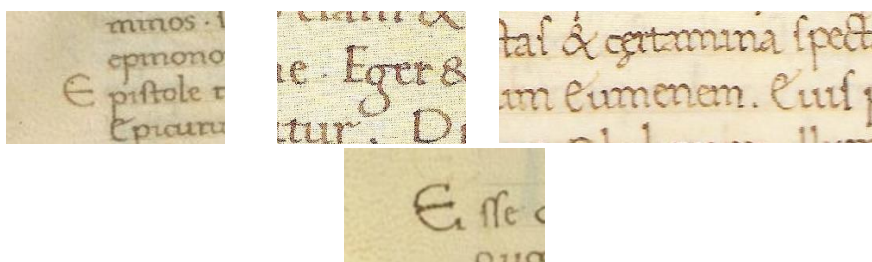 minos.
epmono
E pistole
Epicuru
ne. Eger &
ctur. D
tas & certamina spect
um Eumenem. Eius
E sse